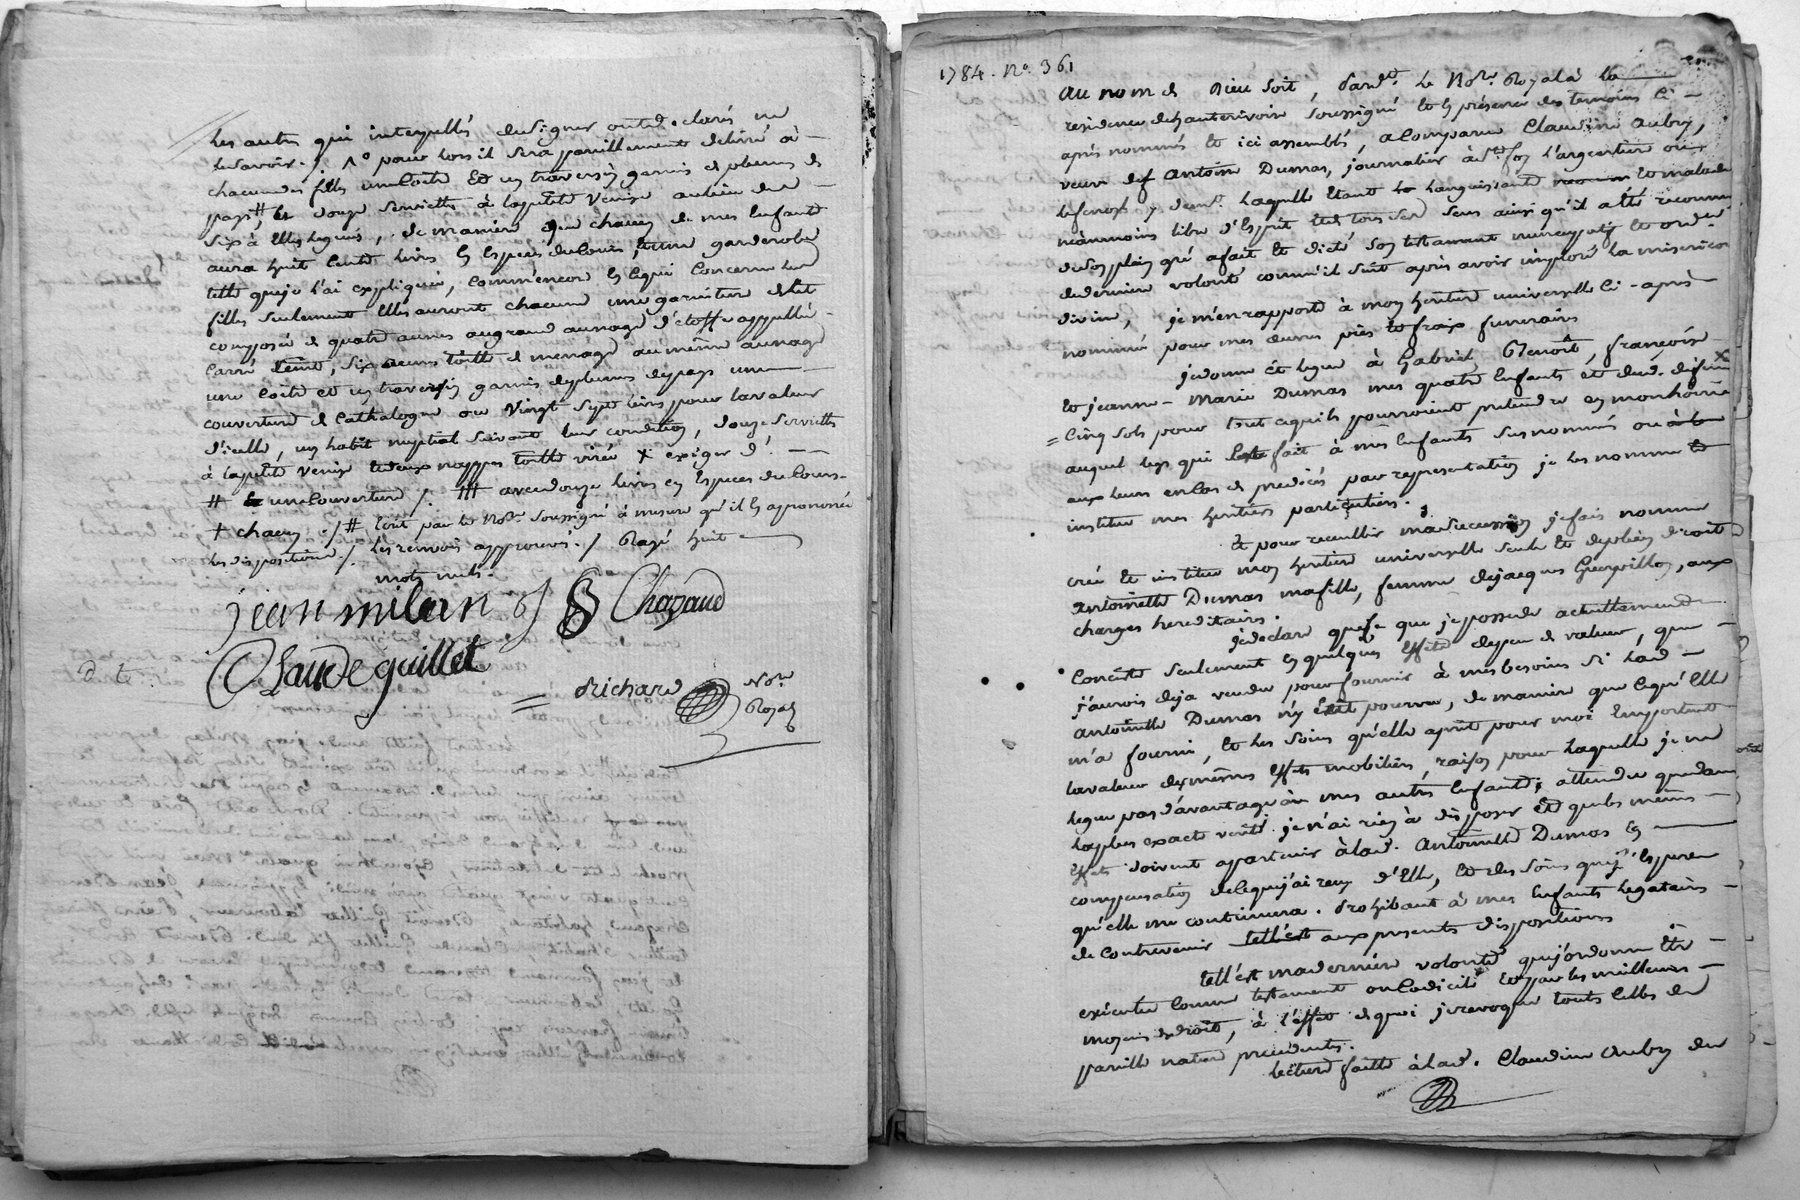 les autres qui interpellés de signer ont d. clarés ne
le savoir. / 1° pour lors il sera pareillement délivré à
chacune des filles une coite et un traversin garnis de plumes de
pays, # et douze serviettes à la petite Venise au lieu de
six à elles leguées, de maniere que chacun de mes enfants
aura huit cents livres en especes de cours, et une garderobe
telle que je l'ai expliquée, comm'encor en ce qui concerne les
filles seulement elles auront chacune une garniture de lit
composée de quatre aunes au grand aunage d'etoffe appellée
carré teint, six aunes toille de menage au même aunage
une coite et un traversin garnis de plumes de pays une
couverture de Cathalogne ou vingt sept livres pour la valeur
d'icelle, un habit nuptial suivant leur condition, douze serviettes
à la petite Venise et deux nappes toille
# une couverture /. ### avec douze livres en especes de cours
+ chacun ./ # Ecrit par le Nore. soussigné à mesure qu'il en a prononcé
les dispositions ./ les renvois approuvés ./ Rayé huit
mots nuls.
jean milan Chazaud
Claude guillet
drichard Nore.
Royal
1784. No. 361
Au nom de Dieu soit, pardt. le Nore. Royal à la
residence de hauterivoire soussigné et en présence des temoins ci-
après nommés et ici assemblés, a comparue Claudine Aubry,
veuve de f Antoine Dumas, journalier à St. foy l'argentiere où
y demt. laquelle étant languissante et malade
néanmoins libre d'Esprit et de tous ses sens ainsi qu'il a été reconnu
de son plein gré a fait et dicté son testament nuncupatif et ordce.
de derniere volonté comm'il suit après avoir imploré la misericor
divine, je m'en rapporte à mon heritiere universelle ci-après
nommée pour mes œuvres pies et fraix funeraires
je donne et legue à Gabriel, Benoît, françoise
et jeanne-Marie Dumas mes quatre enfants et dud. defunt x
= cinq sols pour tout ce qu'ils pourroient pretendre en mon hoirie
auquel legs qui est fait à mes enfants susnommés ou
aux leurs en cas de predécès par representation je les nomme et
institue mes heritiers particuliers.
et pour recueillir ma succession je fais nomme
crée et institue mon heritiere universelle seule et de plein droit
Antoinette Dumas ma fille, femme de jacques Greppillon, aux
charges hereditaires.
je declare que ce que je possede actuellement
consiste seulement en quelques effets de peu de valeur, que
j'aurois deja vendu pour fournir à mes besoins si lad
Antoinette Dumas n'y eut pourvu, de maniere que ce qu'elle
m'a fourni, et les soins qu'elle a prit pour moi emportent
la valeur des mêmes effets mobiliers, raison pour laquelle je ne
legue pas d'avantage à mes autres enfants, attendu que dans
la plus exacte verité je n'ai rien à disposer et que les mêmes
effets doivent appartenir à lad. Antoinette Dumas en
compensation de ce que j'ai reçu d'Elle, et des soins que j'espere
qu'elle me continuera. Prohibant à mes enfants legataires
de contrevenir aux presentes dispositions
tell'est ma derniere volonté que j'ordonne être
exécutée comme testament ou codicile et par les meilleurs
moyens de droit, à l'effet de quoi je revoque touts celles de
pareille nature precedents.
lecture faitte à lad. Claudine Aubry de